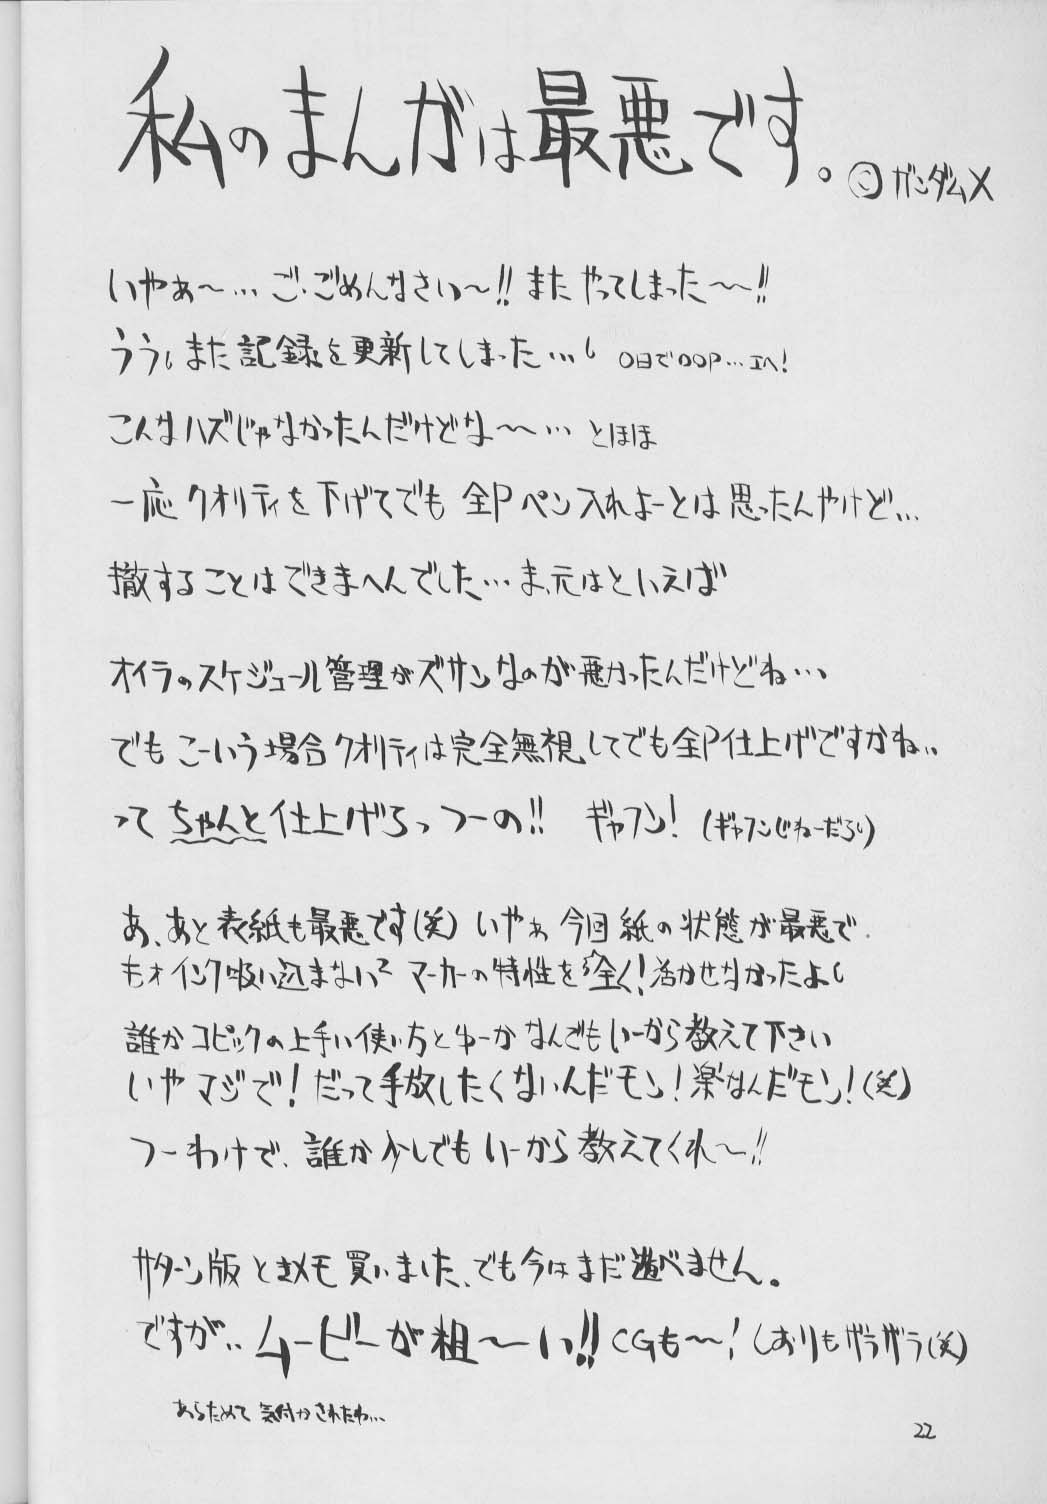 私のまんがは最悪です。©ガンダムX
いやぁ〜… ご・ごめんなさい〜!! また やってしまった〜〜!!
うう。また記録を更新してしまった…。 〇日で〇〇P…エヘ!
こんなハズじゃなかったんだけどな〜〜… とほほ
一応クオリティを下げてでも 全Pペン入れよーとは思ったんやけど…
撤することはできまへんでした… ま、元はといえば
オイラのスケジュール管理がズサンなのが悪かったんだけどね…
でも こーいう場合クオリティは完全無視してでも全P仕上げですかね..
って ちゃんと仕上げろっつーの!! ギャフン! (ギャフンじねーだろい)
あ、あと表紙も最悪です(笑) いやぁ 今回 紙の状態が最悪で.
もォインク吸い込まないで マーカーの特性を全く!活かせなかったよ。
誰かコピックの上手い使い方とゆーかなんでもいーから教えて下さい
いやマジで! だって手放したくないんだモン! 楽なんだモン!(笑)
つーわけで、誰か少しでもいーから教えてくれ〜!!
サターン版ときメモ買いました、でも今はまだ遊べません。
ですが.. ムービーが粗〜い!! CGも〜! しおりもザラザラ(笑)
あらためて気付かされたわ…
22